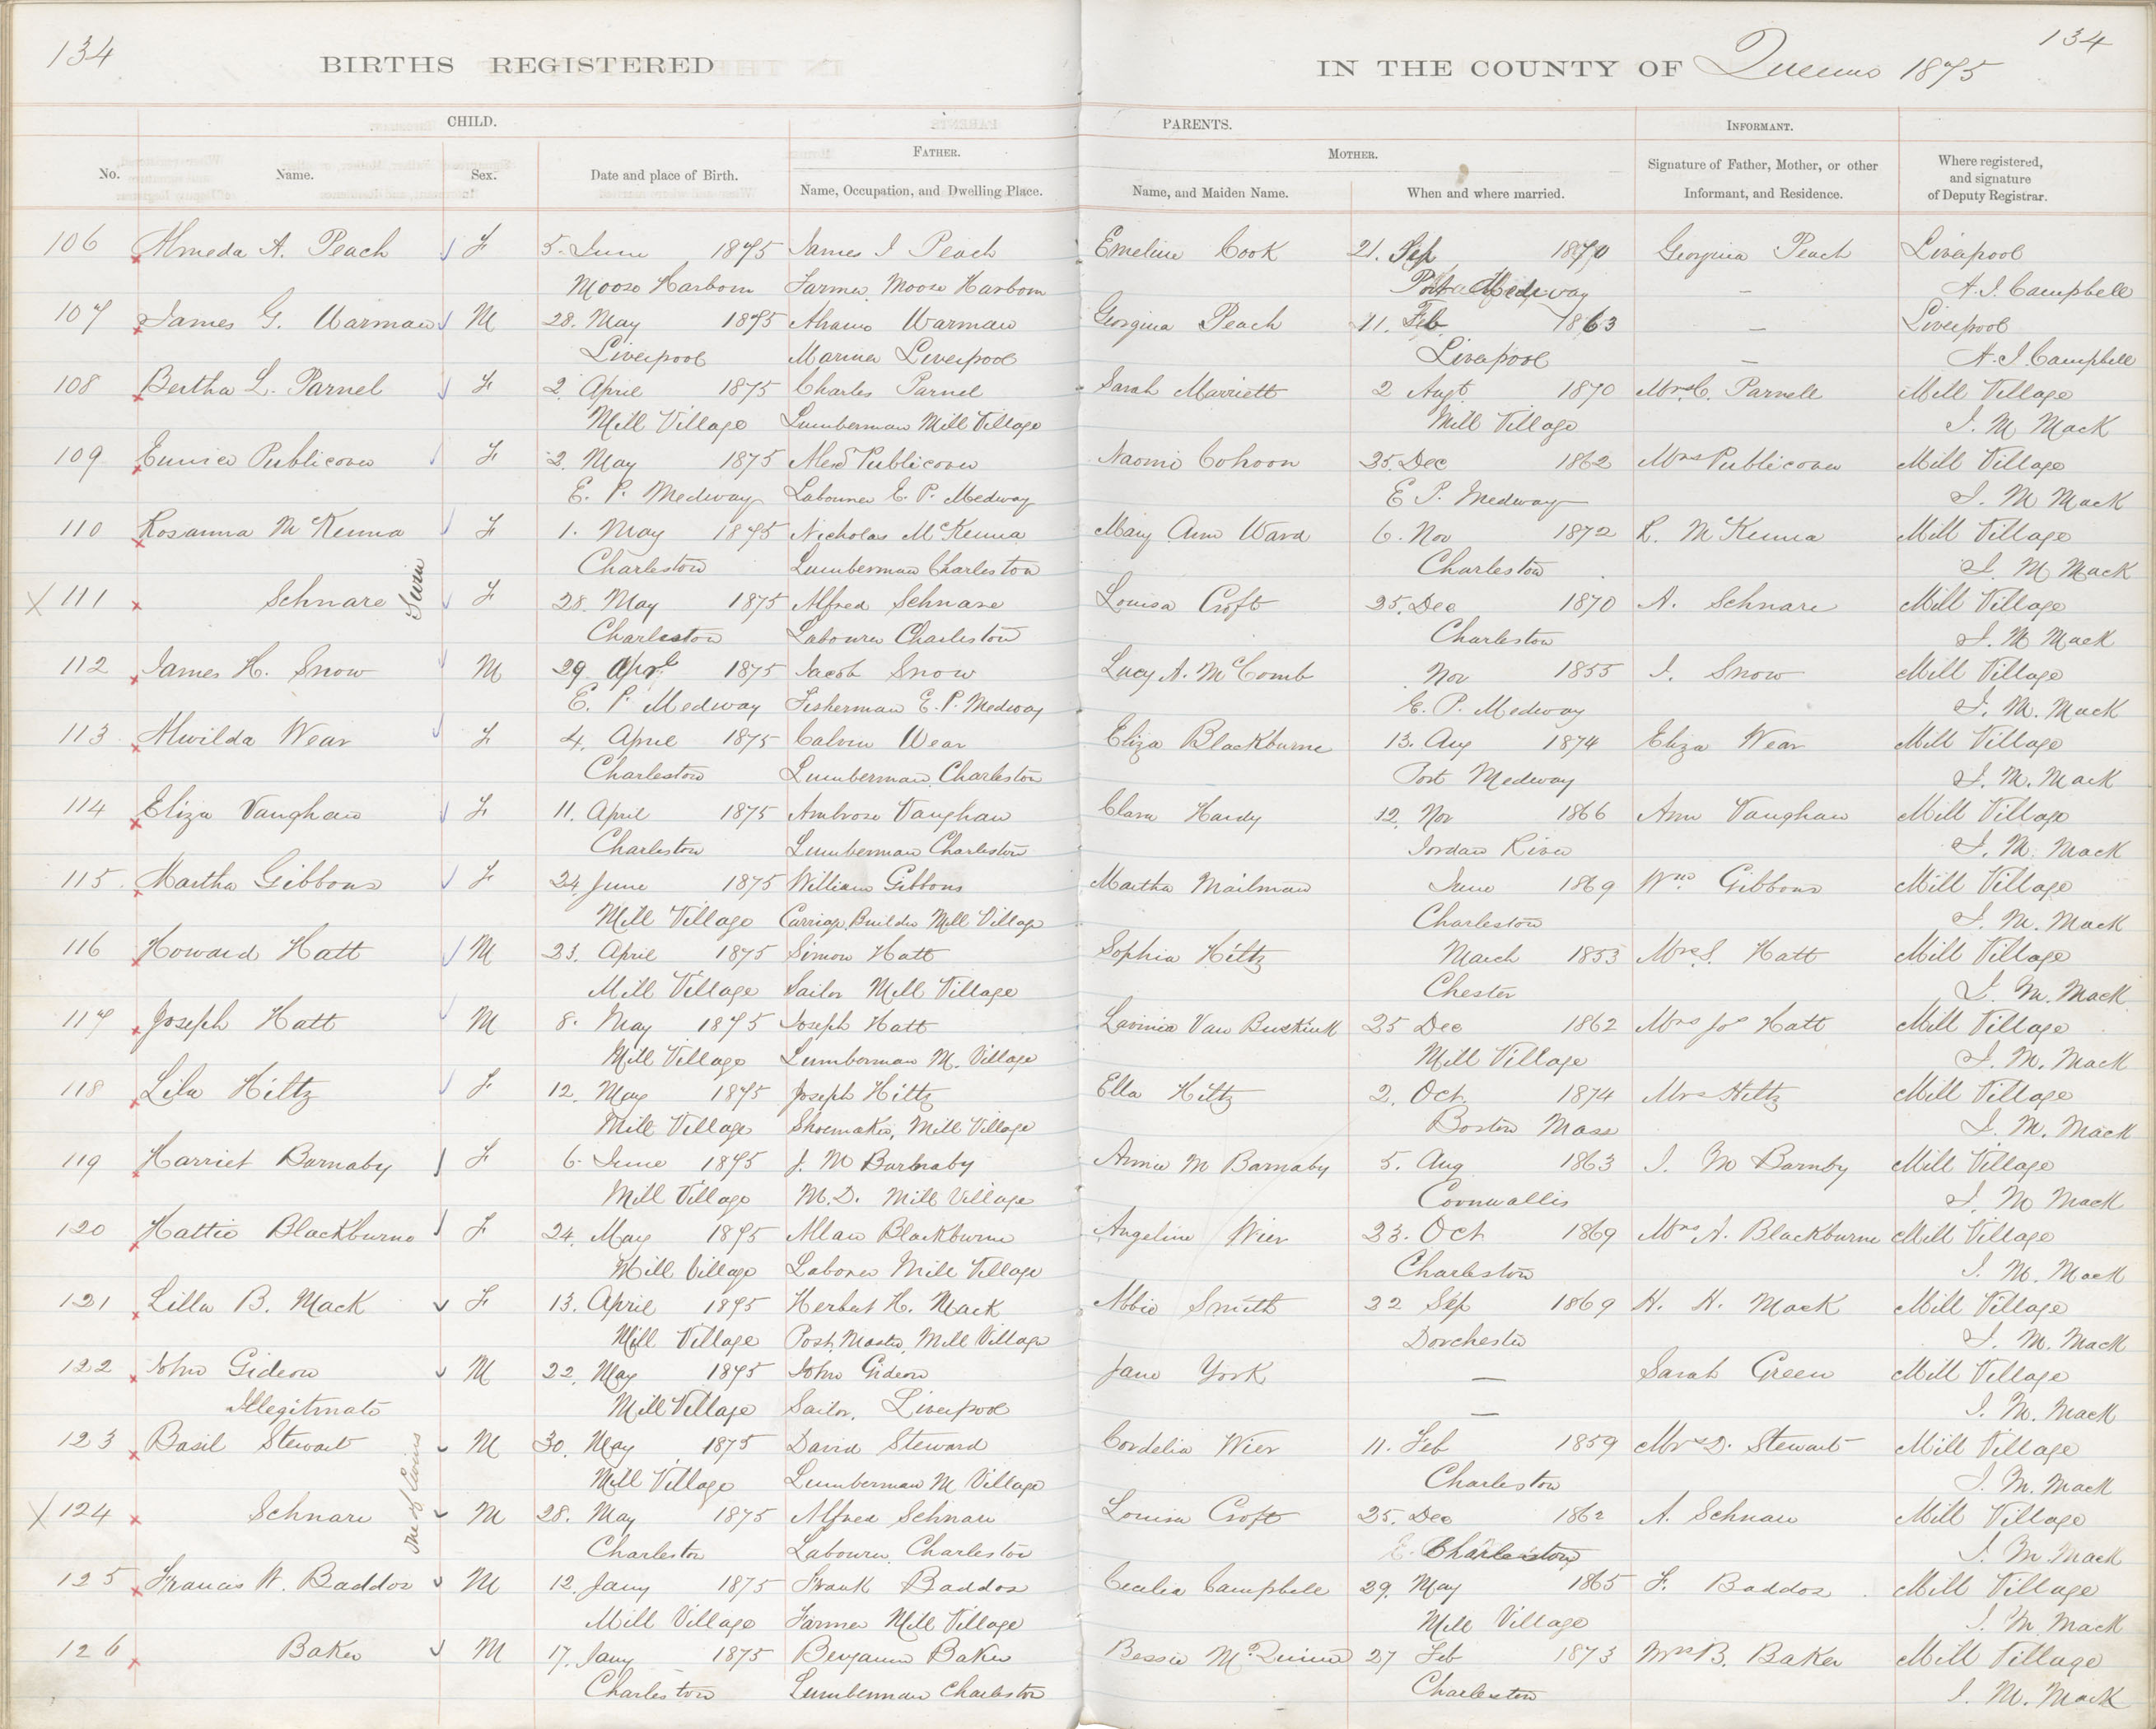 134
134
BIRTHS REGISTERED IN THE COUNTY OF Queens 1875
CHILD. PARENTS. INFORMANT.
FATHER. MOTHER.
No. Name. Sex. Date and place of Birth. Name, Occupation, and Dwelling Place. Name, and Maiden Name. When and where married. Signature of Father, Mother, or other Informant, and Residence. Where registered, and signature of Deputy Registrar.
106 Almeda A. Peach F 5. June 1875 James I Peach Emeline Cook 21. Sep 1870 Georgina Peach Liverpool
Moose Harbour Farmer Moose Harbour Port Medway — A. I. Campbell
107 James G. Warman M 28. May 1875 Warman Georgina Peach 11. Feb 1863 — Liverpool
Liverpool Mariner Liverpool Liverpool — A. I. Campbell
108 Bertha L. Parnel F 2. April 1875 Charles Parnel Sarah Marriett 2 Augt. 1870 Mrs C. Parnell Mill Village
Mill Village Lumberman Mill Village Mill Village I. M Mack
109 Eunice Publicover F 2. May 1875 Alexd Publicover Naomi Cohoon 25. Dec 1862 Mrs Publicover Mill Village
E. P. Medway Labourer E. P. Medway E P. Medway I. M Mack
110 Rosanna McKenna F 1. May 1875 Nicholas McKenna Mary Ann Ward 6. Nov 1872 R. McKenna Mill Village
Charleston Lumberman Charleston Charleston I. M Mack
X 111 Schnare Twin F 28. May 1875 Alfred Schnare Louisa Croft 25. Dec 1870 A. Schnare Mill Village
Charleston Labourer Charleston Charleston I. M Mack
112 James H. Snow M 29 Aprl 1875 Jacob Snow Lucy A. McComb Nov 1855 I. Snow Mill Village
E. P. Medway Fisherman E. P. Medway E. P. Medway I. M. Mack
113 Alwilda Wear F 4. April 1875 Calvin Wear Eliza Blackburne 13. Aug 1874 Eliza Wear Mill Village
Charleston Lumberman Charleston Port Medway I. M. Mack
114 Eliza Vaughan F 11. April 1875 Ambrose Vaughan Clara Hardy 12. Nov 1866 Ann Vaughan Mill Village
Charleston Lumberman Charleston Jordan River I. M. Mack
115. Martha Gibbons F 24 June 1875 William Gibbons Martha Mailman June 1869 Wm Gibbons Mill Village
Mill Village Carriage Builder Mill Village Charleston I. M. Mack
116 Howard Hatt M 23. April 1875 Simon Hatt Sophia Hiltz March 1853 Mrs S. Hatt Mill Village
Mill Village Sailor Mill Village Chester I. M. Mack
117 Joseph Hatt M 8. May 1875 Joseph Hatt Lavinia Van Buskirk 25 Dec 1862 Mrs Jos Hatt Mill Village
Mill Village Lumberman M. Village Mill Village I. M. Mack
118 Lila Hiltz F 12. May 1875 Joseph Hiltz Ella Hiltz 2. Oct. 1874 Mrs Hiltz Mill Village
Mill Village Shoemaker, Mill Village Boston Mass I. M. Mack
119 Harriet Barnaby F 6. June 1875 J. M Barnaby Annie M Barnaby 5. Aug 1863 I. M Barnby Mill Village
Mill Village M.D. Mill Village Cornwallis I. M Mack
120 Hattie Blackburne F 24. May 1875 Allan Blackburne Angeline Wier 23. Oct 1869 Mrs A. Blackburne Mill Village
Mill Village Laborer Mill Village Charleston I. M. Mack
121 Lilla B. Mack F 13. April 1875 Herbert H. Mack Abbie Smith 22 Sep 1869 H. H. Mack Mill Village
Mill Village Post Master, Mill Village Dorchester I. M. Mack
122 John Gideon M 22. May 1875 John Gideon Jane York — Sarah Green Mill Village
Illegitimate Mill Village Sailor, Liverpool — I. M. Mack
123 Basil Stewart M 30. May 1875 David Steward Cordelia Wier 11. Feb 1859 Mrs D. Stewart Mill Village
Mill Village Lumberman M Village Charleston I. M. Mack
X 124 Schnare one of twins M 28. May 1875 Alfred Schnare Louisa Croft 25. Dec 1862 A. Schnare Mill Village
Charleston Labourer, Charleston Charleston I. M Mack
125 Francis W. Baddos M 12. Jany 1875 Frank Baddos Cecelia Campbell 29. May 1865 F. Baddos Mill Village
Mill Village Farmer Mill Village Mill Village I. M. Mack
126 Baker M 17. Jany 1875 Benjamin Baker Bessie McQuinn 27 Feb 1873 Mrs B. Baker Mill Village
Charleston Lumberman Charleston Charleston I. M. Mack